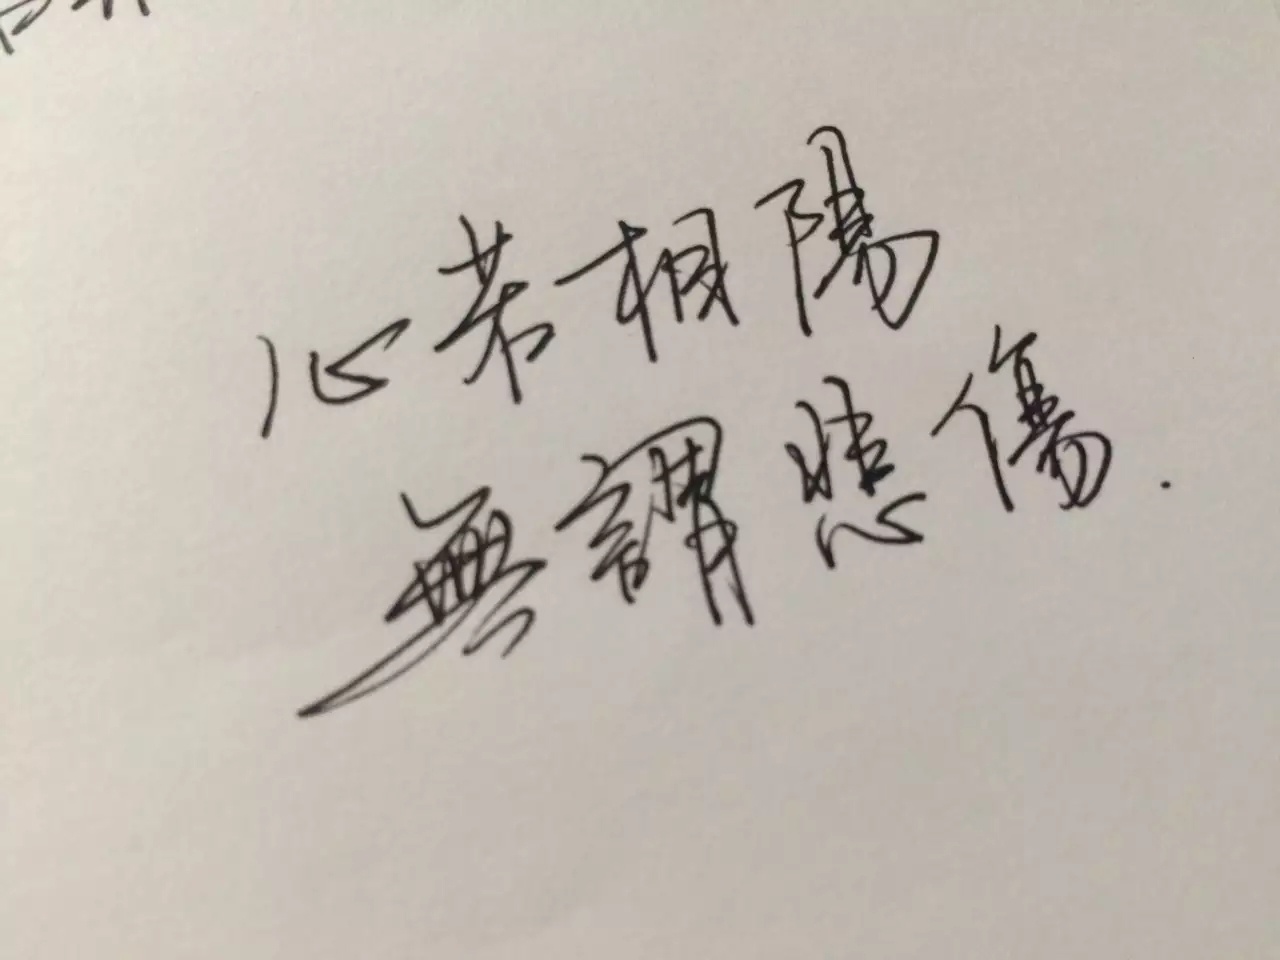 心若相陽
無謂悲傷.